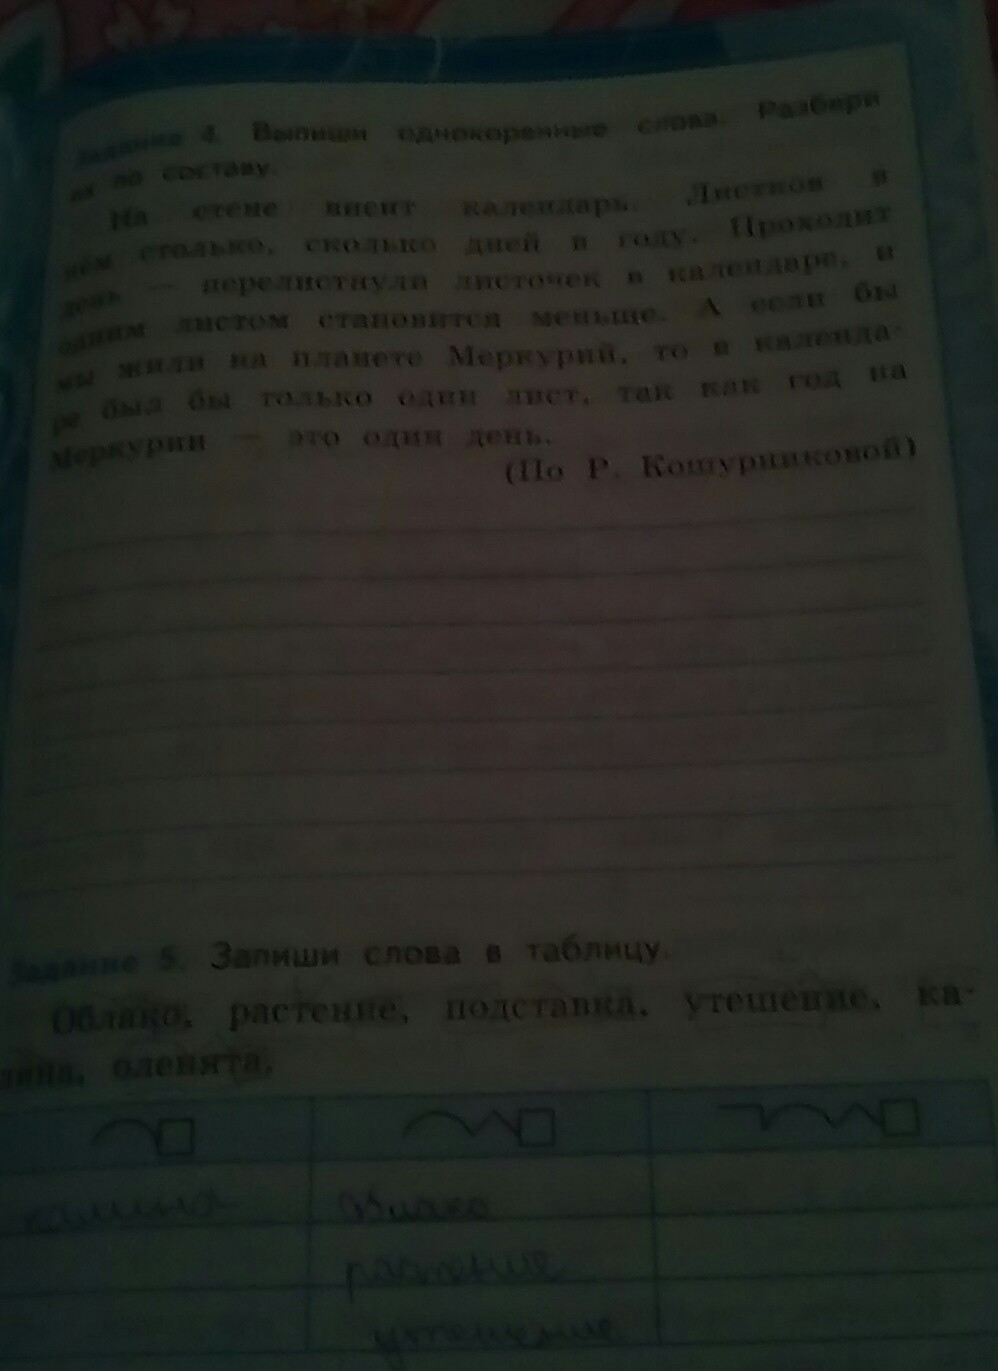 Задание 4. Выпиши однокоренные слова. Разбери
их по составу.
На стене висит календарь. Листков в
нём столько, сколько дней в году. Проходит
день — перелистнула листочек в календаре, и
одним листом становится меньше. А если бы
мы жили на планете Меркурий, то в календа-
ре был бы только один лист, так как год на
Меркурии — это один день.
(По Р. Кошурниковой)
Задание 5. Запиши слова в таблицу.
Облако, растение, подставка, утешение, ка-
лина, оленята.
облако
растение
утешение